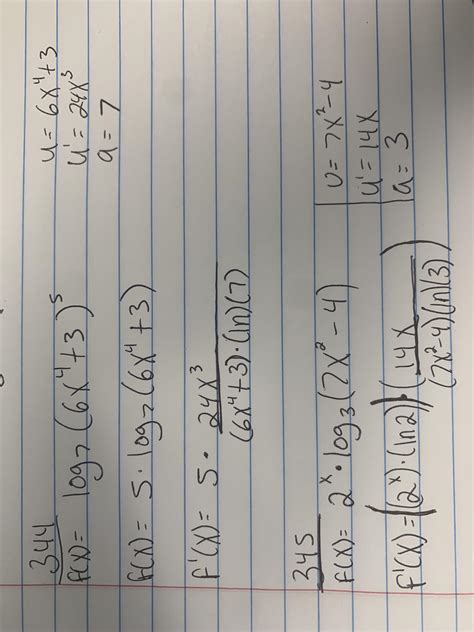 344
f(x)= log₇(6x⁴+3)⁵
u= 6x⁴+3
u'= 24x³
a= 7
f(x)= 5·log₇(6x⁴+3)
f'(x)= 5· 24x³
(6x⁴+3)·(ln)(7)
345
f(x)= 2ˣ·log₃(7x²-4)
u= 7x²-4
u'= 14x
a= 3
f'(x)=((2ˣ)·(ln2))·(14x)
(7x²-4)(ln)(3)